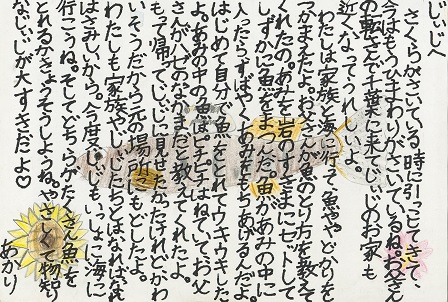 じぃじへ
さくらがさいている時に引っこしてきて、
今はもうひまわりがさいているね。お父さん
の転きんで千葉に来てじぃじのお家も
近くなってうれしいよ。
わたしは家族と海に行って魚ややどかりを
つかまえたよ。お父さんが魚のとり方を教えて
くれたの。あみを岩のすきまにセットして
しずかに魚をまつんだ。魚があみの中に
入ったらすばやくあみをもちあげるんだよ。
はじめて自分で魚をとれてウキウキした
よ。あみの中の魚はピチピチはねていてお父
さんがハゼのなかまだと教えてくれたよ。
もって帰ってじぃじに見せたかったけれどかわ
いそうだから元の場所にもどしたよ。
わたしも家族やじぃじたちとはなればなれ
はさみしいから。今度じぃじもいっしょに海に
行こうね。そしてどちらがたくさん魚を
とれるかきょうそうしようね。やさしくて物知り
なじぃじが大すきだよ♡
あかり